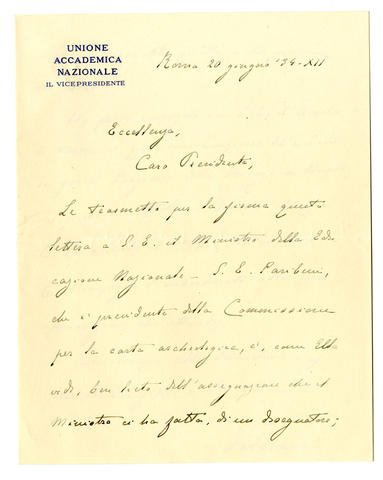 UNIONE
ACCADEMICA
NAZIONALE
IL VICEPRESIDENTE
Roma 20 giugno '34-XII
Eccellenza,
Caro Presidente,
Le trasmetto per la firma questa
lettera a S. E. il Ministro della Edu
cazione Nazionale - S. E. Paribeni,
che è presidente della Commissione
per la carta archeologica, è, come Ella
vede, ben lieto dell'assegnazione che il
Ministro ci ha fatta, di un disegnatore;